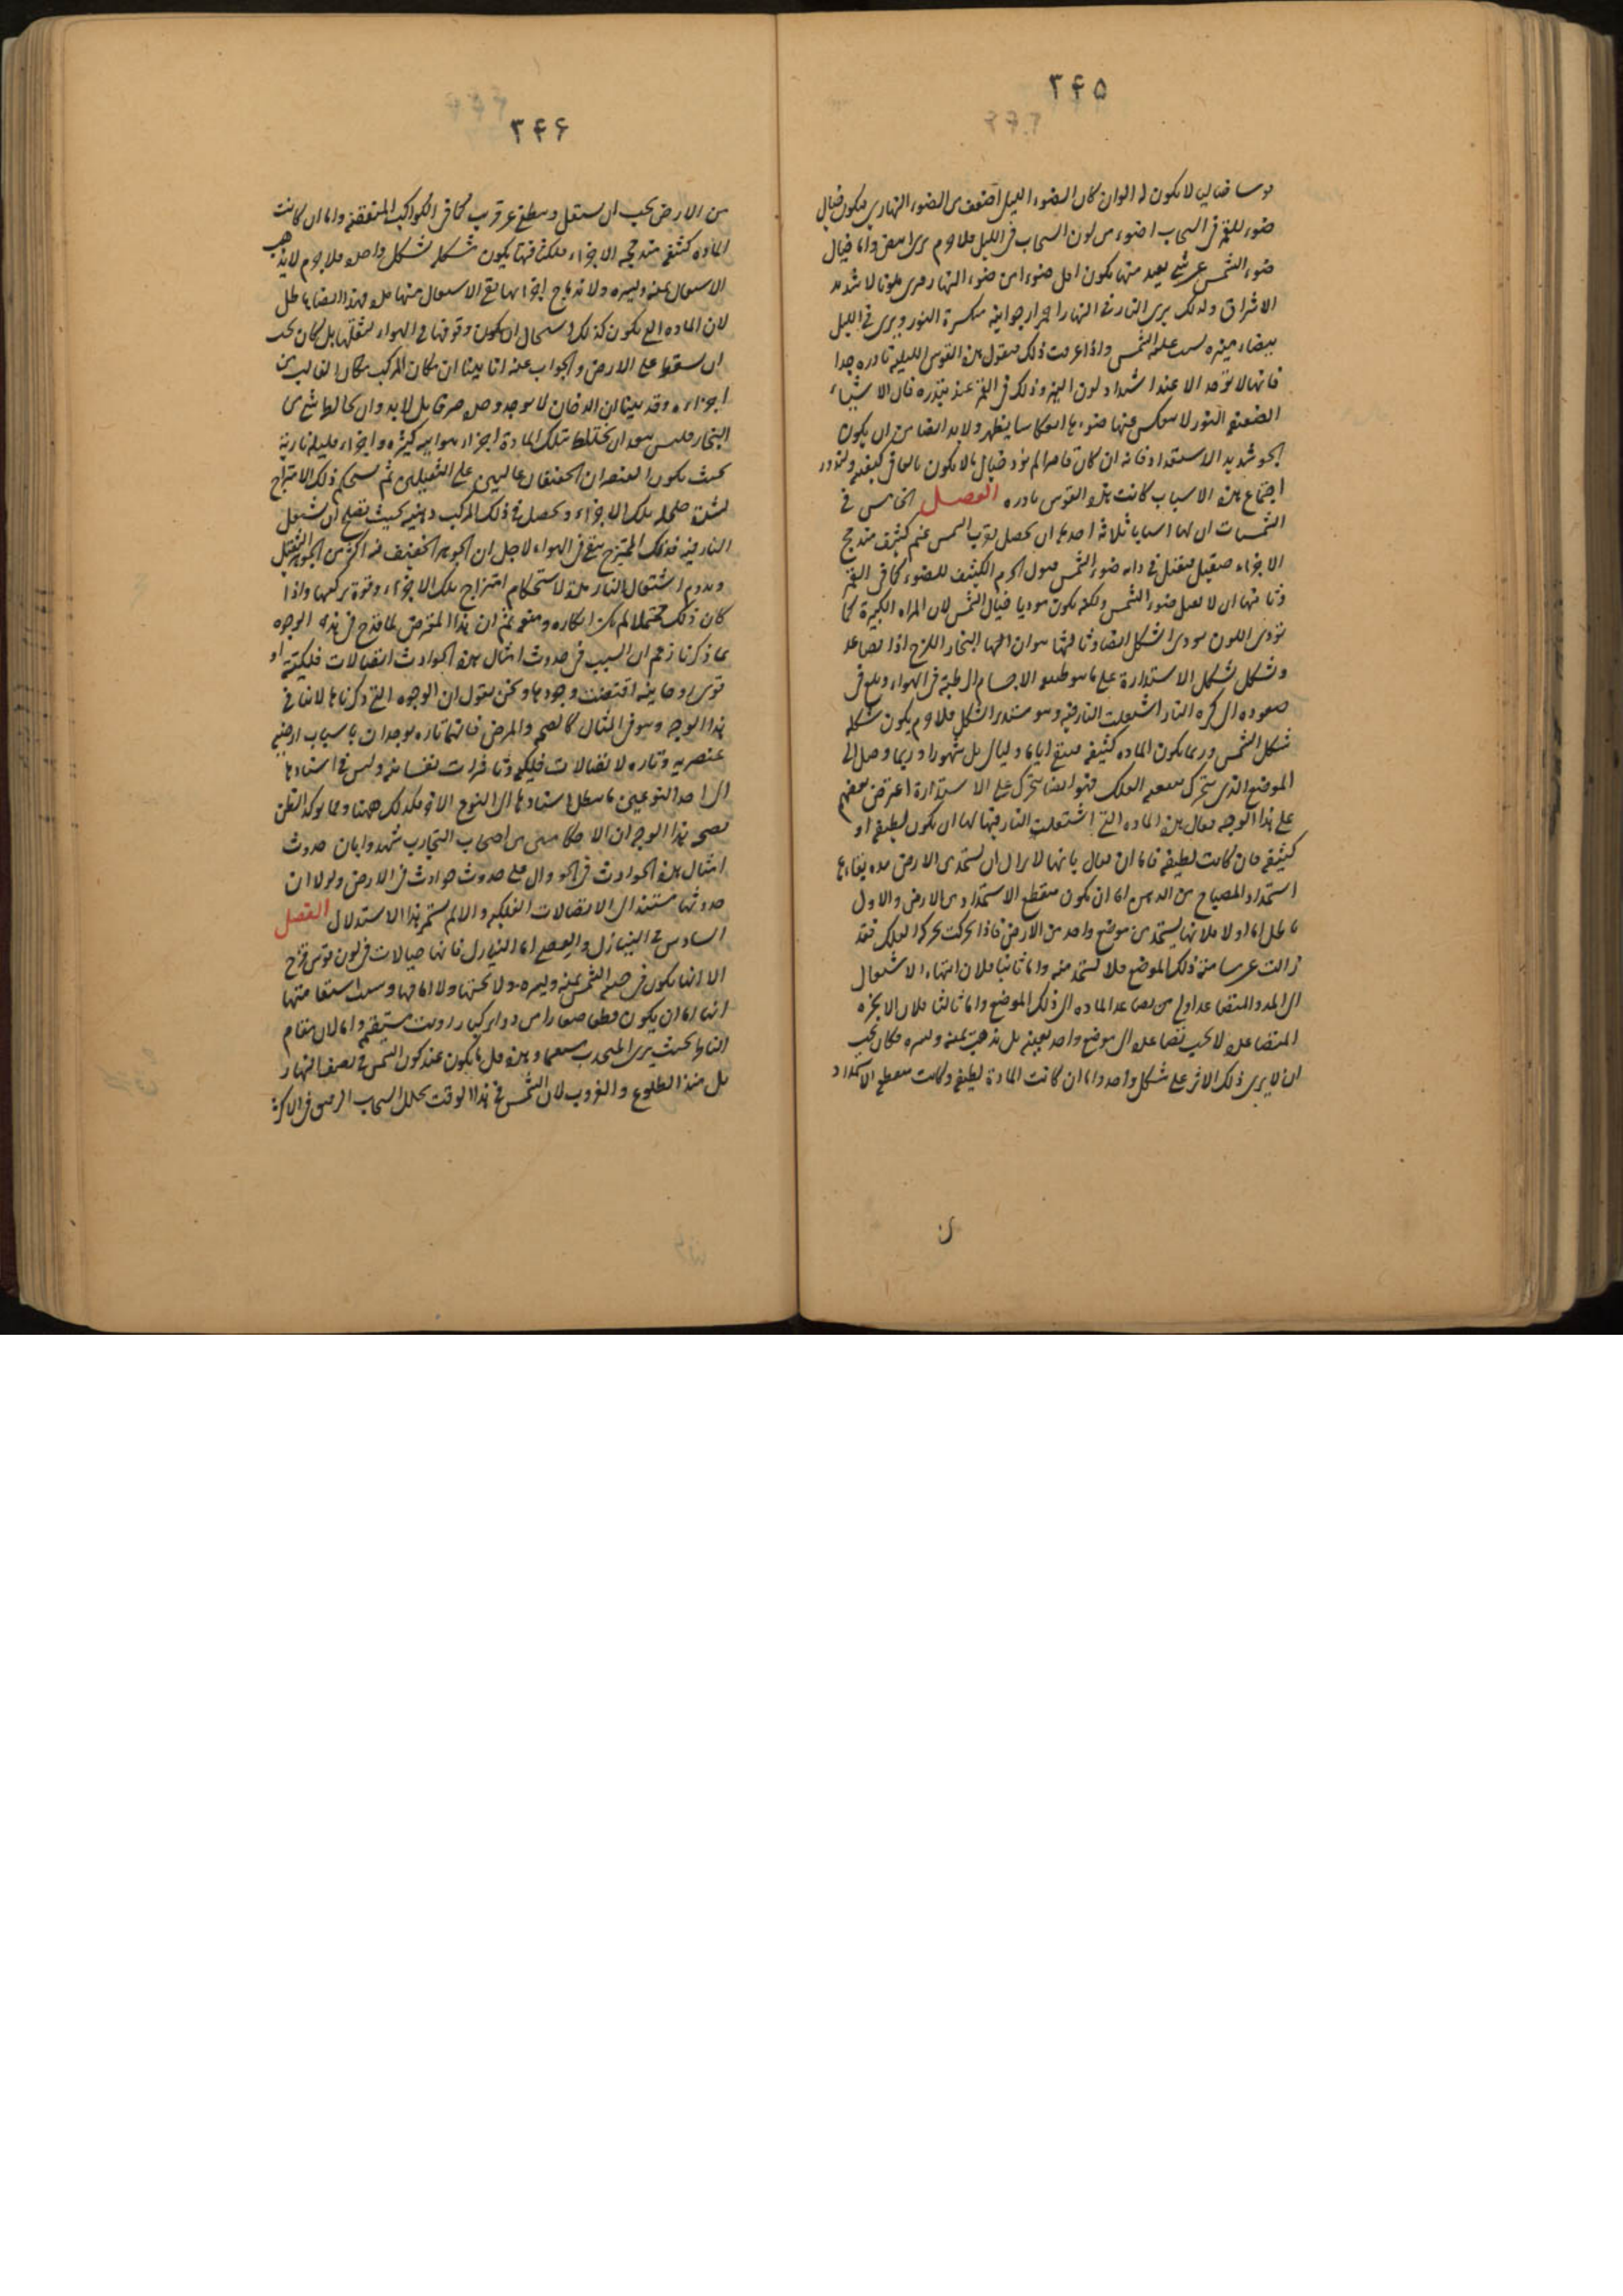 ۳۴۵
قوسا خياليا لا يكون له الوان كان الضوء الليلى اضعف من الضوء النهارى فيكون خيال
ضوء القمر فى السحاب اضوء من لون السحاب فى الليل فلا جرم يرى ابيض واما خيال
ضوء الشمس عن شئ بعيد منها يكون اقل ضوءا من ضوء النهار فيرى ملونا لا شديد
الاشراق ولذلك يرى النار فى النهار احمرا ارجوانيه منكسرة النور ويرى فى الليل
بيضاء منيره عليه الشمس واذا عرفت ذلك فنقول هذه القوس الليليه نادره جدا
فانها لا توجد الا عند اشتداد لون النير وذلك فى القمر عند تبدره فان الاشياء
الضعيفه النور لا ينعكس عنها ضوءها انعكاسا يظهر ولا بد ايضا من ان يكون
الجو شديد الاستعداد فانه ان كان قاصرا لم يؤد خيال ما لا يكون بالغا فى كيفيه ولندور
اجتماع هذه الاسباب كانت هذه القوس نادره الفصل الخامس فى
الشميسات ان لها اسبابا ثلاثة احدها ان يحصل بقرب الشمس غيم كثيف مندمج
الاجزاء صقيل فيقبل فى ذاته ضوء الشمس قبول الجرم الكثيف للضوء كما فى القمر
وثانيها ان لا يقبل ضوء الشمس ولكنه يكون موديا خيال الشمس لان المراه الكبيرة كما
تؤدى اللون تودى الشكل ايضا وثالثها هو ان البخار اللزج اذا تصاعد
وتشكل بشكل الاستدارة على ما هو طبيعه الاجسام الرطبة فى الهواء وبلغ فى
صعوده الى كره النار اشتعلت النار فيه وهو مستدير الشكل فلا جرم يكون شكله
شكل الشمس وربما يكون الماده كثيفه فيبقى اياما وليالى بل شهورا وربما وصل الى
الموضع الذى يتحرك بتبعيه الفلك فهو ايضا يتحرك على الاستدارة اعترض بعضهم
على هذا الوجه فقال هذه الماده التى اشتعلت النار فيها اما ان يكون لطيفه او
كثيفه فان كانت لطيفه فاما ان يقال بانها لا يزال ان يستمد من الارض مده بقاءها
استمداد المصباح من الدهن اما ان يكون منقطع الاستمداد من الارض والاول
باطل اما اولا فلانها يستمد من موضع واحد من الارض فاذا تحركت بحركه الفلك فقد
زالت عن مسامته ذلك الموضع فلا يستمد منه واما ثانيا فلان انتهاء الاشتعال
الى المدد المتصاعد اولى من تصاعد الماده الى ذلك الموضع واما ثالثا فلان الابخره
المتصاعده لا يجب تصاعدها الى موضع واحد بعينه بل يذهب يمنه ويسره فكان يجب
ان لا يرى ذلك الاثر على شكل واحد واما ان كانت المادة لطيفه وكانت منقطع الاستمداد
۳۴۶
من الارض يجب ان يشتعل وينطفئ عن قريب كما فى الكواكب المنقضه واما ان كانت
الماده كثيفه مندمجه الاجزاء فلكثافتها يكون شكله شكل واحد فلا جرم لا يذهب
الاشتعال يمنه ويسره ولاندماج اجزائها بقى الاشتعال فيها مده فهذا ايضا باطل
لان الماده التى يكون كذلك استحال ان يكون وقوفها فى الهواء لثقلها بل كان يجب
ان يسقط على الارض والجواب عنه انا بينا ان مكان المركب مكان الغالب من
اجزاءه وقد بينا ان الدخان لا يوجد وحده صرفا بل لا بد وان يخالطه شئ من
البخار فليس يبعد ان يختلط بتلك المادة اجزاء هوائيه كثيره واجزاء قليله نارية
بحيث يكون العنصران الخفيفان غالبين على الثقيلين ثم يستحكم ذلك الامتزاج
لشدة تلك الاجزاء ويحصل فى ذلك المركب دهنيه بحيث يصلح ان يشتعل
النار فيه فذلك الممتزج يبقى فى الهواء لاجل ان الجوهر الخفيف فيه اكثر من الجوهر الثقيل
ويدوم اشتعال النار مدة لاستحكام امتزاج تلك الاجزاء وقوة تركيبها واذا
كان ذلك محتملا لم يمكن انكاره ثم ان هذا المعترض لما قدح فى هذه الوجوه
بما ذكرنا زعم ان السبب فى حدوث امثال هذه الحوادث اتصالات فلكيه او
قوى روحانيه اقتضت وجودها ونحن نقول ان الوجوه التى ذكرناها لا تنافى
هذا الوجه وهو فى المثال كالصحه والمرض فانهما تاره يوجدان باسباب ارضيه
عنصريه وتاره لاتصالات فلكيه وتاثيرات نفسانيه وليس فى استنادها
الى احد النوعين ما يبطل استنادها الى النوع الاخر فكذلك ههنا ومما يوكد الظن
بصحه هذا الوجه ان الاحكاميين من اصحاب التجارب شهدوا بان حدوث
امثال هذه الحوادث فى الجو دال على حدوث حوادث فى الارض ولولا ان
حدوثها مستند الى الاتصالات الفلكيه والا لم يستمر هذا الاستدلال الفصل
السادس فى النيازك والعصى اما النيازك فانها خيالات فى لون قوس قزح
الا انها يكون فى جنبه الشمس يمنه ويسره ولا تحتها ولا امامها وسبب استقامتها
انها اما ان يكون قطعا صغارا من دواير كبار رويت مستقيمه واما لان مقام
الناظر بحيث يرى المحدب مستقيما وهذه قل ما يكون عند كون الشمس فى نصف النهار
بل عند الطلوع والغروب لان الشمس فى هذا الوقت يحلل السحاب الرقيق فى الاكثر